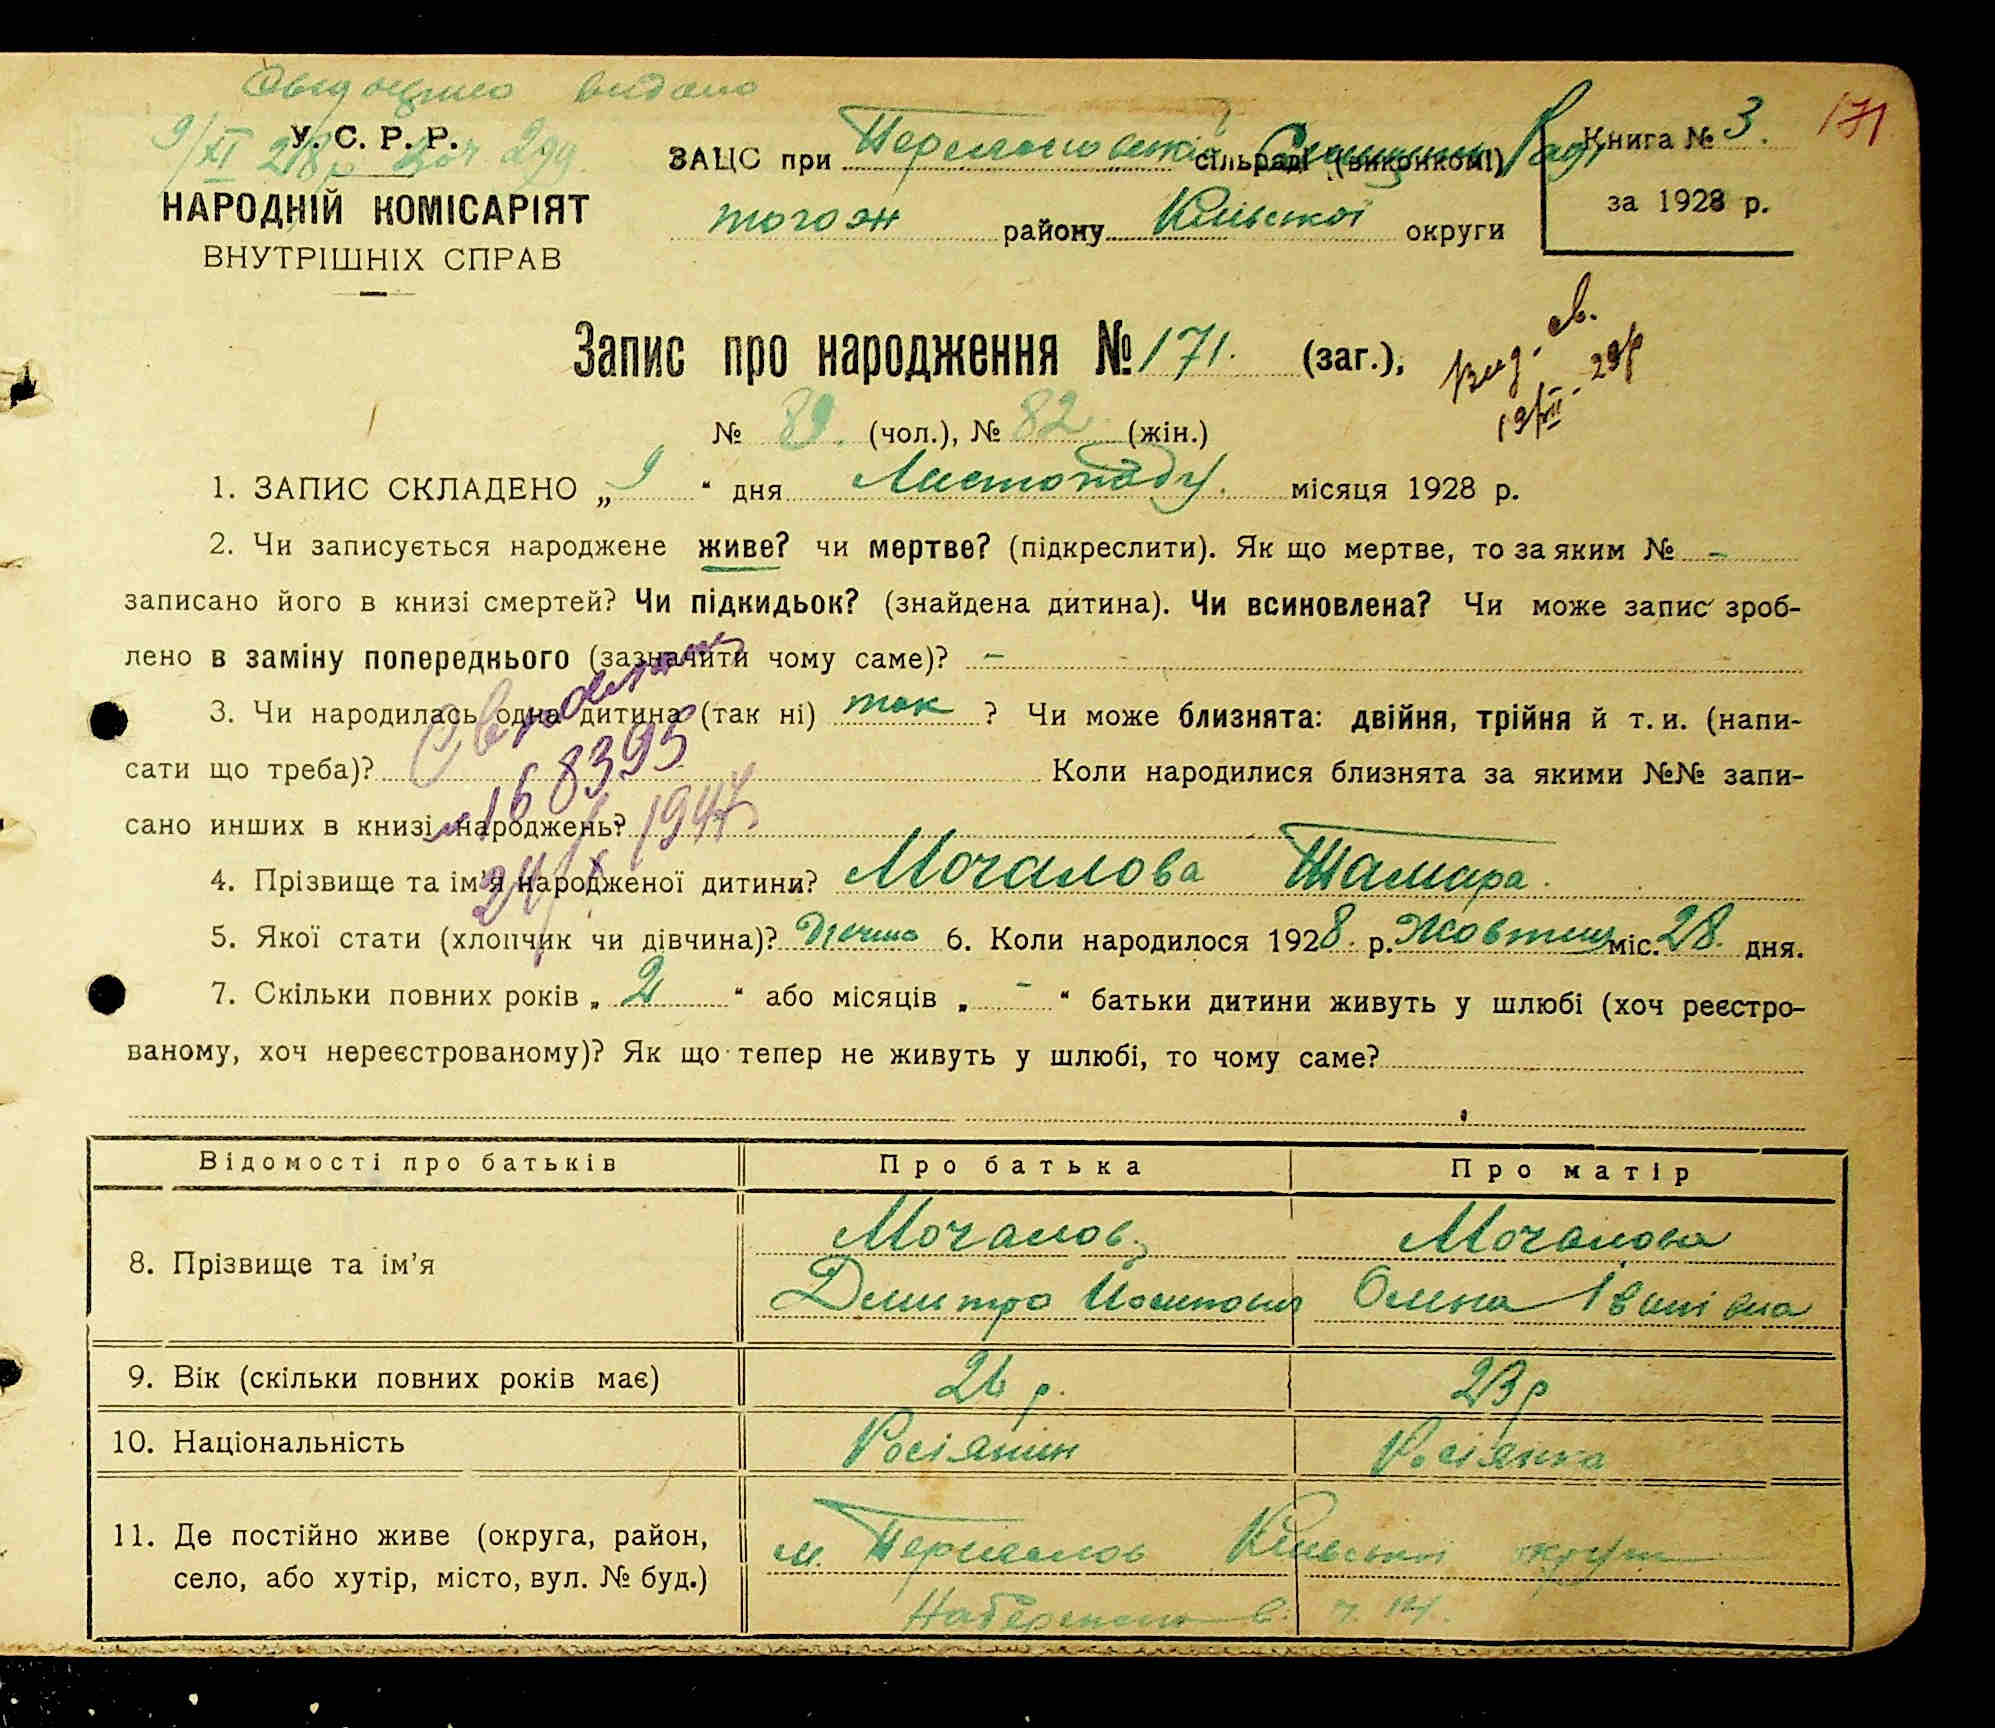 Свідоцтво видано
9/XI 28 р. 299.
У. С. Р. Р.
НАРОДНІЙ КОМІСАРІЯТ
ВНУТРІШНІХ СПРАВ
ЗАЦС при сільраді (виконкомі)
тогож району Київської округи
Книга № 3.
за 1928 р.
171
Запис про народження № 171. (заг.),
вид. св.
19/XII - 29 р
№ 89. (чол.), № 82 (жін.)
1. ЗАПИС СКЛАДЕНО „ 9 “ дня Листопаду. місяця 1928 р.
2. Чи записується народжене живе? чи мертве? (підкреслити). Як що мертве, то за яким № -
записано його в книзі смертей? Чи підкидьок? (знайдена дитина). Чи всиновлена? Чи може запис зроб-
лено в заміну попереднього (зазначити чому саме)? -
3. Чи народилась одна дитина (так ні) так ? Чи може близнята: двійня, трійня й т. и. (напи-
сати що треба)? Коли народилися близнята за якими №№ запи-
сано инших в книзі народжень?
168395
24/X 1947
4. Прізвище та ім'я народженої дитини? Мочалова Тамара.
5. Якої стати (хлопчик чи дівчина)? 6. Коли народилося 1928. р. Жовтня міс. 28. дня.
7. Скільки повних років „ 2 “ або місяців „ - “ батьки дитини живуть у шлюбі (хоч реєстро-
ваному, хоч нереєстрованому)? Як що тепер не живуть у шлюбі, то чому саме?
Відомості про батьків Про батька Про матір
8. Прізвище та ім'я Мочалов Мочалова
Дмитро Йосипович Олена Іванівна
9. Вік (скільки повних років має) 26 р. 23 р
10. Національність Росіянин Росіянка
11. Де постійно живе (округа, район,
село, або хутір, місто, вул. № буд.)
м. Київської округи